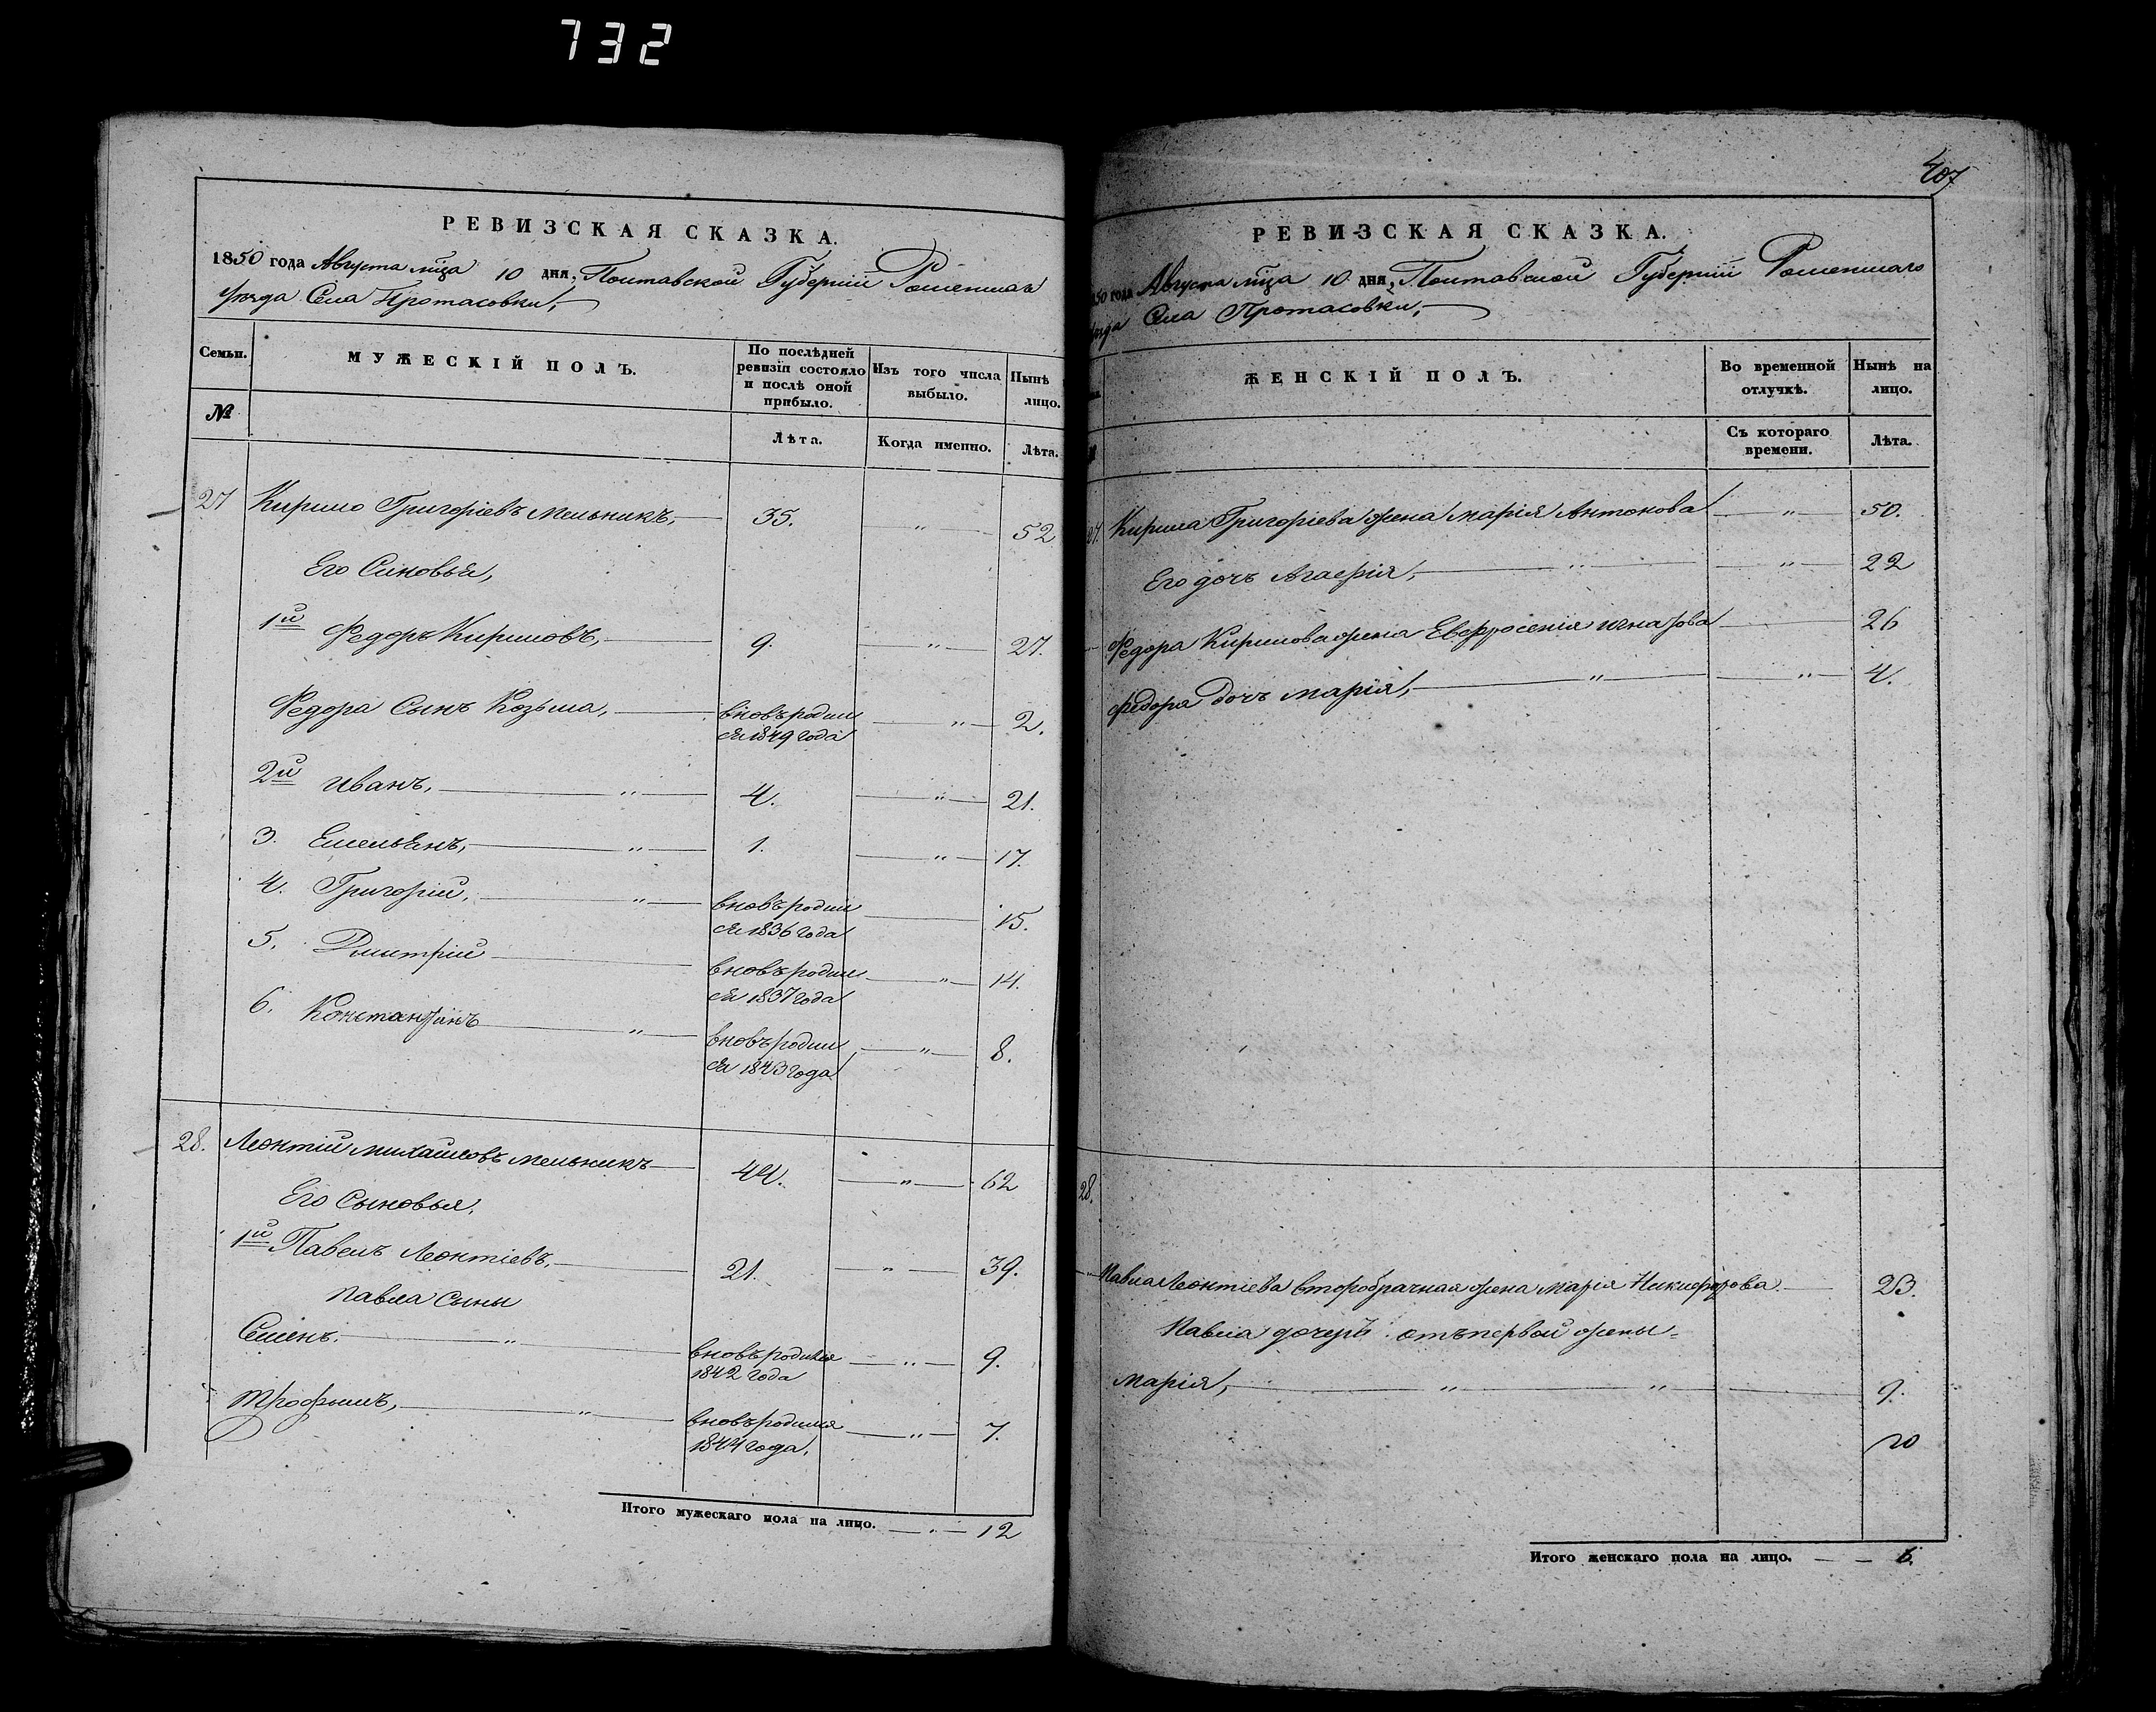 732
РЕВИЗСКАЯ СКАЗКА.
1850 года Августа мца 10 дня, Полтавской Губерніи Роменшаго
Уезда Села Протасовки,
Семьи. МУЖЕСКІЙ ПОЛЪ. По послѣдней ревизіи состояло и послѣ оной прибыло. Изъ того числа выбыло. Нынѣ лицо.
№ Лѣта. Когда именно. Лѣта.
27 Кирило Григоріевъ Мельникъ, 35. „ 52
Его Синовья,
1й Федоръ Кириловъ, 9. „ 27.
Федора Сынъ Козьма, вновь родил „ 2.
ся 1849 года
2й Иванъ, „ 4. „ 21.
3. Емельянъ, „ 1. „ 17.
4. Григорій, „ вновь родил 15.
ся 1836 года
5. Дмитрій вновь родил „ 14.
ся 1837 года
6. Константинъ „ вновь родил „ 8.
ся 1843 года
28. Леонтій Михайловъ Мельникъ 44. „ 62
Его Сыновья,
1й Павелъ Леонтіевъ, 21. „ 39.
Павла Сыны
Семенъ. „ вновь родился „ 9.
1842 года
Трофымъ, „ вновь родился „ 7.
1844 года,
Итого мужескаго пола на лицо. „ 12
407
РЕВИЗСКАЯ СКАЗКА.
1850 года Августа мца 10 дня, Полтавской Губерніи Роменшаго
Уезда Села Протасовки,
№ ЖЕНСКІЙ ПОЛЪ. Во временной отлучкѣ. Нынѣ на лицо.
Съ котораго времени. Лѣта.
27. Кирила Григоріева жена Марія Антонова „ 50.
Его дочь Агафія, „ „ 22
Федора Кирилова жена Евфросенія Игнатова 26
Федора Дочь Марія, „ „ 4.
28.
Павла Леонтіева второбрачная жена Марія Никифорова 23.
Павла дочерь отъ первой жены
Марія, „ „ 9.
Итого женскаго пола на лицо. 6.